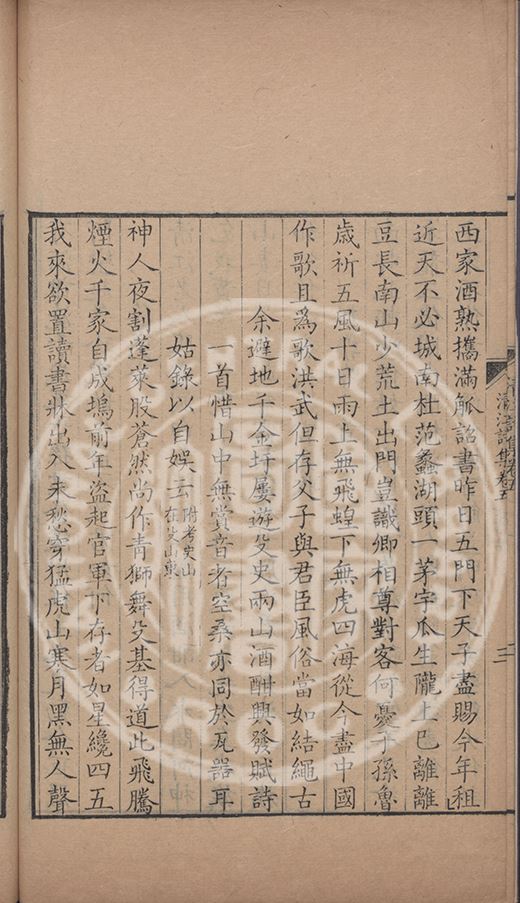 西家酒熟攜滿觚詔書昨日五門下天子盡賜今年租
近天不必城南杜范蠡湖頭一茅宇瓜生隴上已離離
豆長南山少荒土出門豈識卿相尊對客何憂子孫魯
歲祈五風十日雨上無飛蝗下無虎四海從今盡中國
作歌且爲歌洪武但存父子與君臣風俗當如結繩古
余避地千金圩屢遊殳史兩山酒酣興發賦詩
一首惜山中無賞音者空桑亦同於瓦器耳
姑錄以自娛云附考史山在殳山東
神人夜割蓬萊股蒼然尚作青獅舞殳基得道此飛騰
煙火千家自成塢前年盜起官軍下存者如星纔四五
我來欲置讀書牀出入未愁穿猛虎山寒月黑無人聲
三